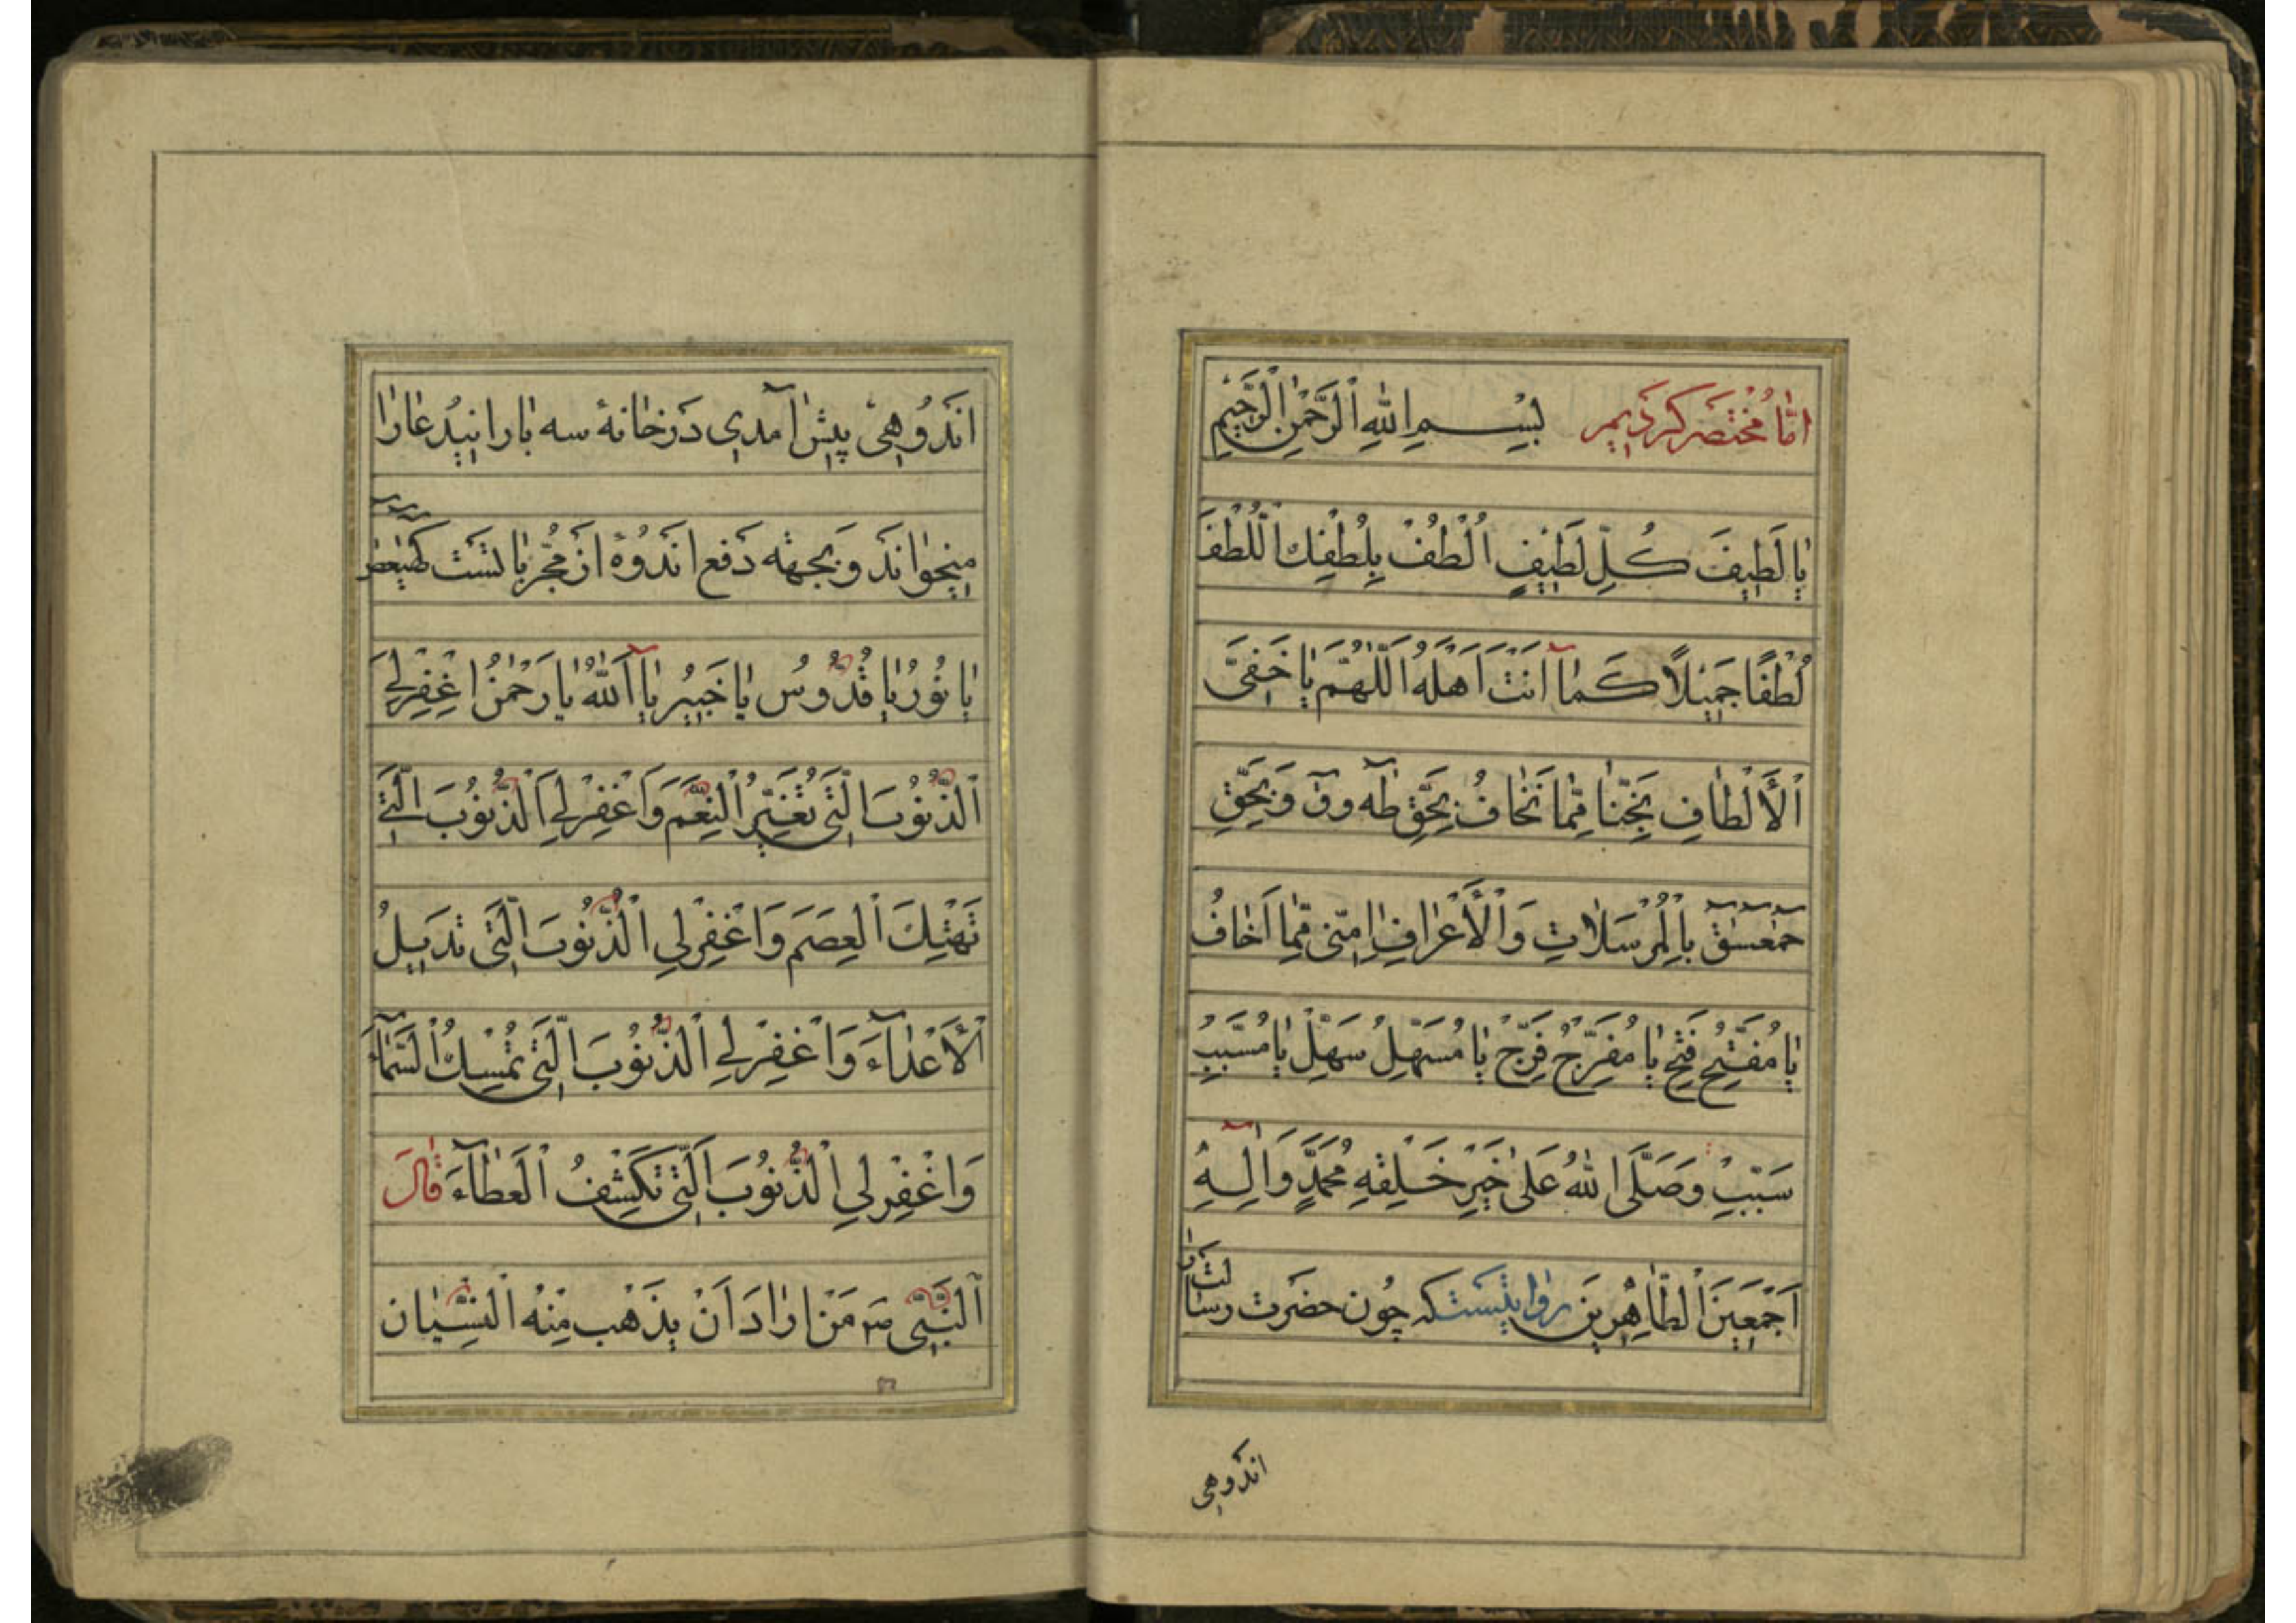 امّا مختصر کردیم بِسْمِ اللهِ الرَّحْمٰنِ الرَّحِيمِ
يا لَطِيفَ كُلِّ لَطِيفٍ اُلْطُفْ بِلُطْفِكَ اللُّطْفَ
لُطْفًا جَمِيلًا كَمٰا اَنْتَ اَهْلُهُ اَللّٰهُمَّ يا خَفِىَّ
اَلْأَلْطٰافِ نَجِّنٰا مِمّٰا نَخٰافُ بِحَقِّ طٰه وق وَبِحَقِّ
حمعسق بِالْمُرْسَلاٰتِ وَالْأَعْرٰافِ اٰمِنّى مِمّٰا اَخٰافُ
يا مُفَتِّحُ فَتِّحْ يا مُفَرِّجُ فَرِّجْ يا مُسَهِّلُ سَهِّلْ يا مُسَبِّبُ
سَبِّبْ وَصَلَّى اللهُ عَلٰى خَيْرِ خَلْقِهِ مُحَمَّدٍ وَاٰلِهِ
اَجْمَعِينَ الطّٰاهِرِينَ روایتست که چون حضرت رسالت را
اندوهی
اندوهی پیش آمدی در خانه سه بار این دعا را
میخواند و بجهته دفع اندوه از مجرباتست كهيعص
يا نُورُ يا قُدُّوسُ يا خَبِيرُ يا اَللهُ يا رَحْمٰنُ اغْفِرْ لِي
اَلذُّنُوبَ الَّتِي تُغَيِّرُ النِّعَمَ وَاغْفِرْ لِيَ الذُّنُوبَ الَّتِي
تَهْتِكَ الْعِصَمَ وَاغْفِرْ لِي الذُّنُوبَ الَّتِي تدَيلُ
الْأَعْدٰاءَ وَاغْفِرْ لِي الذُّنُوبَ الَّتِي تُمْسِكُ السَّمٰاءَ
وَاغْفِرْ لِي الذُّنُوبَ الَّتِي تَكْشِفُ الْغَطٰاءَ قٰالَ
اَلنَّبِيّ ص مَنْ اَرٰادَ اَنْ يَذْهَب مِنْهُ النِّسْيٰان